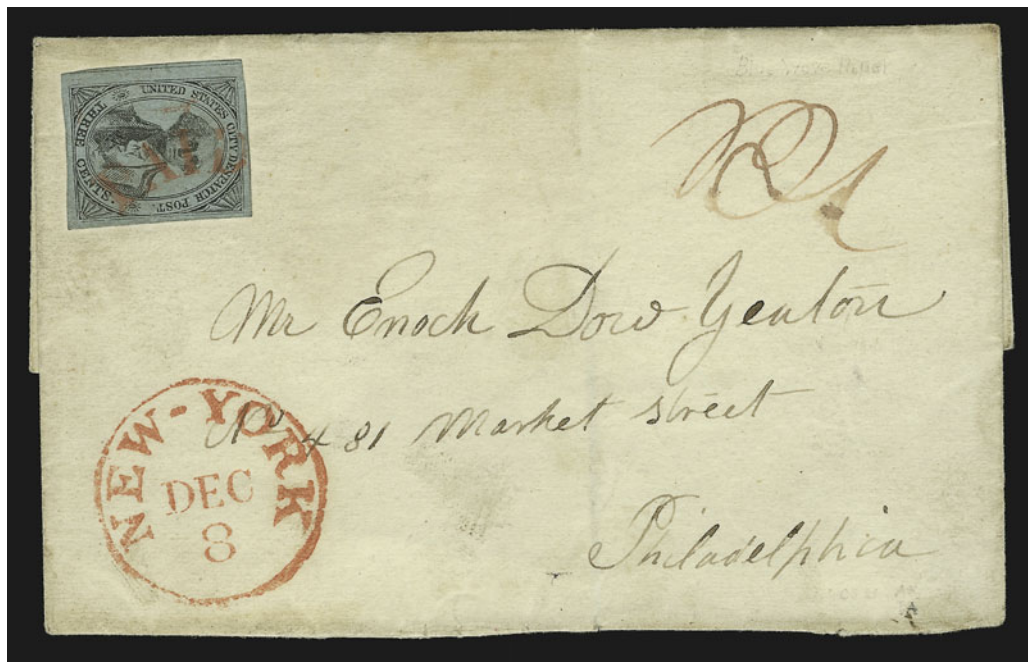 UNITED STATES CITY DESPATCH POST.
THREE CENTS.
PAID
Mr Enoch Dow Yeaton
No 481 Market street
Philadelphia
NEW-YORK
DEC
8